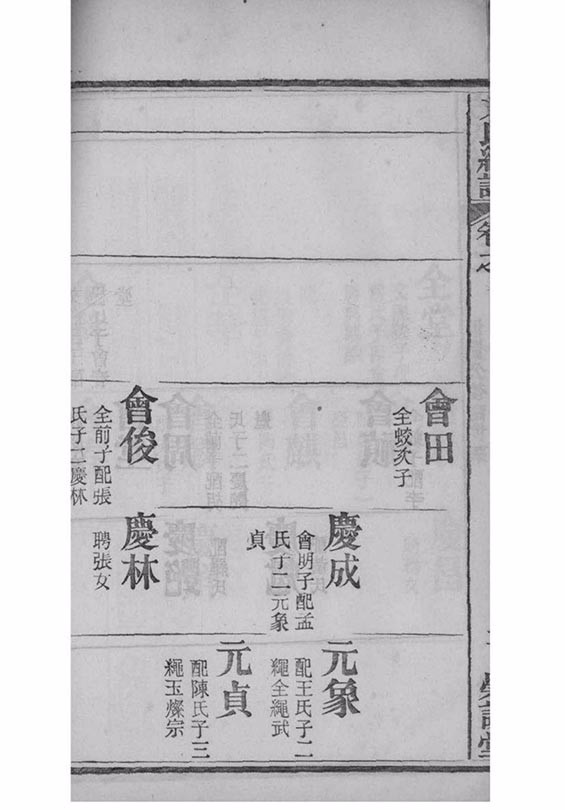 會田
全蛟次子
慶成
會明子配孟
氏子二元象
貞
元象
配王氏子二
繩全繩武
元貞
配陳氏子三
繩玉燦宗
會俊
全前子配張
氏子二慶林
慶林
聘張女